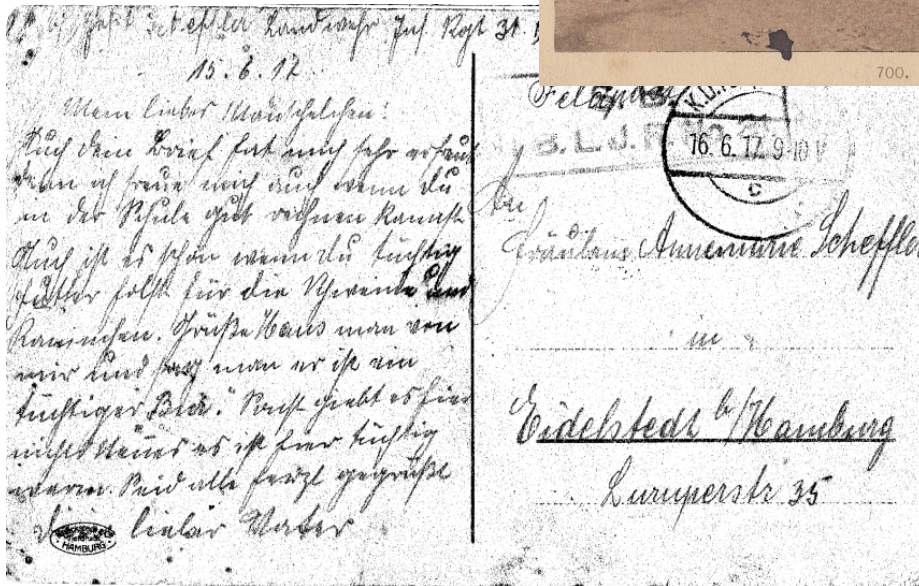 Gefr Scheffler Landwehr Inf. Rgt 31.
15. 6. 17.
Mein liebes Mäuschelchen!
Auch dein Brief hat mich sehr erfreut
denn ich freue mich auch wenn du
in der Schule gut rechnen kannst
Auch ist es schön wenn du tüchtig
Futter holst für die Schweine und
Kaninchen. Grüße Hans man von
mir und sag man er ist ein
tüchtiger Bur. Sonst giebt es hier
nichts Neues es ist hier tüchtig
warm. Seid alle herzl gegrüßt
Dein lieber Vater
HAMBURG
700.
Feldpost
S.B.
B. L. J. R.
16. 6. 17. 9-10 V
c
An
Fräulein Annemarie Scheffler
in
Eidelstedt b/Hamburg
Luruperstr 35